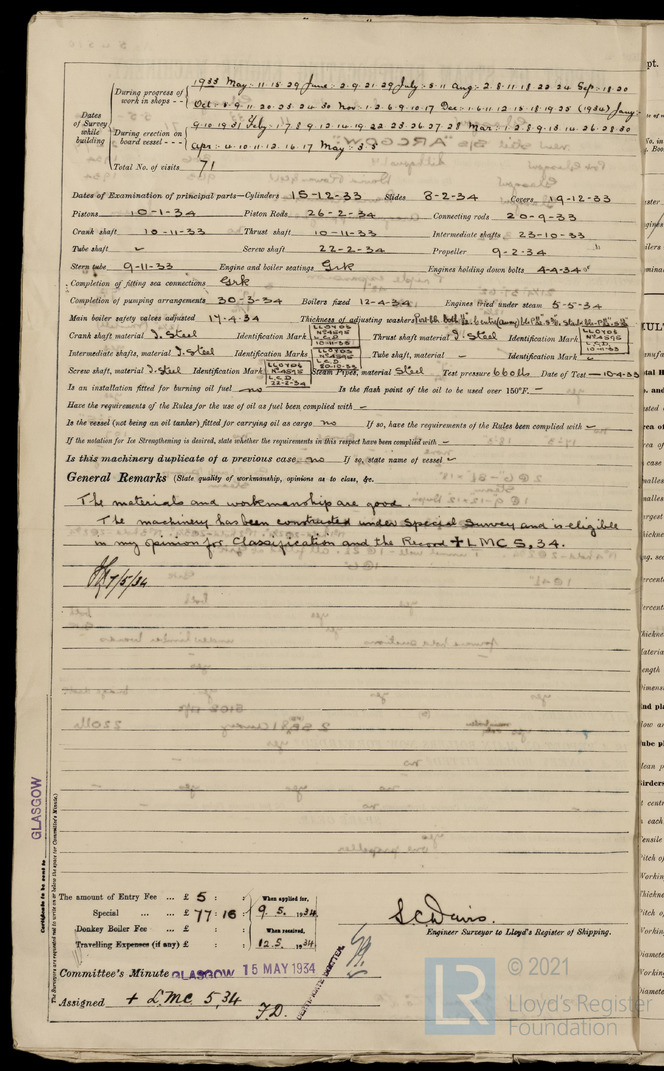 Dates of Survey while building
During progress of work in shops - - 1933 May: 11.15.29 June: 2.9.21.29 July: 5.11 Aug: 2.8.11.18.22.24 Sep: 18.20
Oct: 5.9.11.20.23.24.30 Nov: 1.2.6.9.10.17 Dec: 1.6.11.12.15.18.19.25 (1934) Jany:
During erection on board vessel - - - 9.10.19.31 Feby: 1.7.8.9.12.14.19.22.23.26.27.28 Mar: 1.2.8.9.13.14.26.28.30
Apr: 4.10.11.12.16.17 May: 3.5
Total No. of visits 71
Dates of Examination of principal parts—Cylinders 15-12-33 Slides 8-2-34 Covers 19-12-33
Pistons 10-1-34 Piston Rods 26-2-34 Connecting rods 20-9-33
Crank shaft 10-11-33 Thrust shaft 10-11-33 Intermediate shafts 23-10-33
Tube shaft ✓ Screw shaft 22-2-34 Propeller 9-2-34
Stern tube 9-11-33 Engine and boiler seatings Grk Engines holding down bolts 4-4-34
Completion of fitting sea connections Grk
Completion of pumping arrangements 30-3-34 Boilers fixed 12-4-34 Engines tried under steam 5-5-34
Main boiler safety valves adjusted 17-4-34 Thickness of adjusting washers
Crank shaft material I. Steel Identification Mark LLOYDS No 4595 L.C.D. 10-11-33 Thrust shaft material I. Steel Identification Mark LLOYDS No 4595 L.C.D. 10-11-33
Intermediate shafts, material I. Steel Identification Marks LLOYDS No 4595 L.C.D. Tube shaft, material - Identification Mark ✓
Screw shaft, material I. Steel Identification Mark LLOYDS No 4595 L.C.D. 22-2-34 Steam Pipes, material Steel Test pressure 660 lbs Date of Test 10-4-33
Is an installation fitted for burning oil fuel no Is the flash point of the oil to be used over 150°F. -
Have the requirements of the Rules for the use of oil as fuel been complied with -
Is the vessel (not being an oil tanker) fitted for carrying oil as cargo no If so, have the requirements of the Rules been complied with -
If the notation for Ice Strengthening is desired, state whether the requirements in this respect have been complied with -
Is this machinery duplicate of a previous case no If so, state name of vessel ✓
General Remarks (State quality of workmanship, opinions as to class, &c.
The materials and workmanship are good.
The machinery has been constructed under Special Survey and is eligible
in my opinion for Classification and the Record + LMC 5, 34.
7/5/34
GLASGOW
Certificate to be sent to
The Surveyors are requested not to write on or below the space for Committee's Minute.)
The amount of Entry Fee ... £ 5 : : When applied for,
Special ... ... £ 77 : 16 : 9.5.1934
Donkey Boiler Fee ... £ : : When received,
Travelling Expenses (if any) £ : : 12.5.1934
S.C. Davis.
Engineer Surveyor to Lloyd's Register of Shipping.
Committee's Minute GLASGOW 15 MAY 1934
Assigned + LMC 5,34
F.D.
LR
© 2021
Lloyd's Register
Foundation